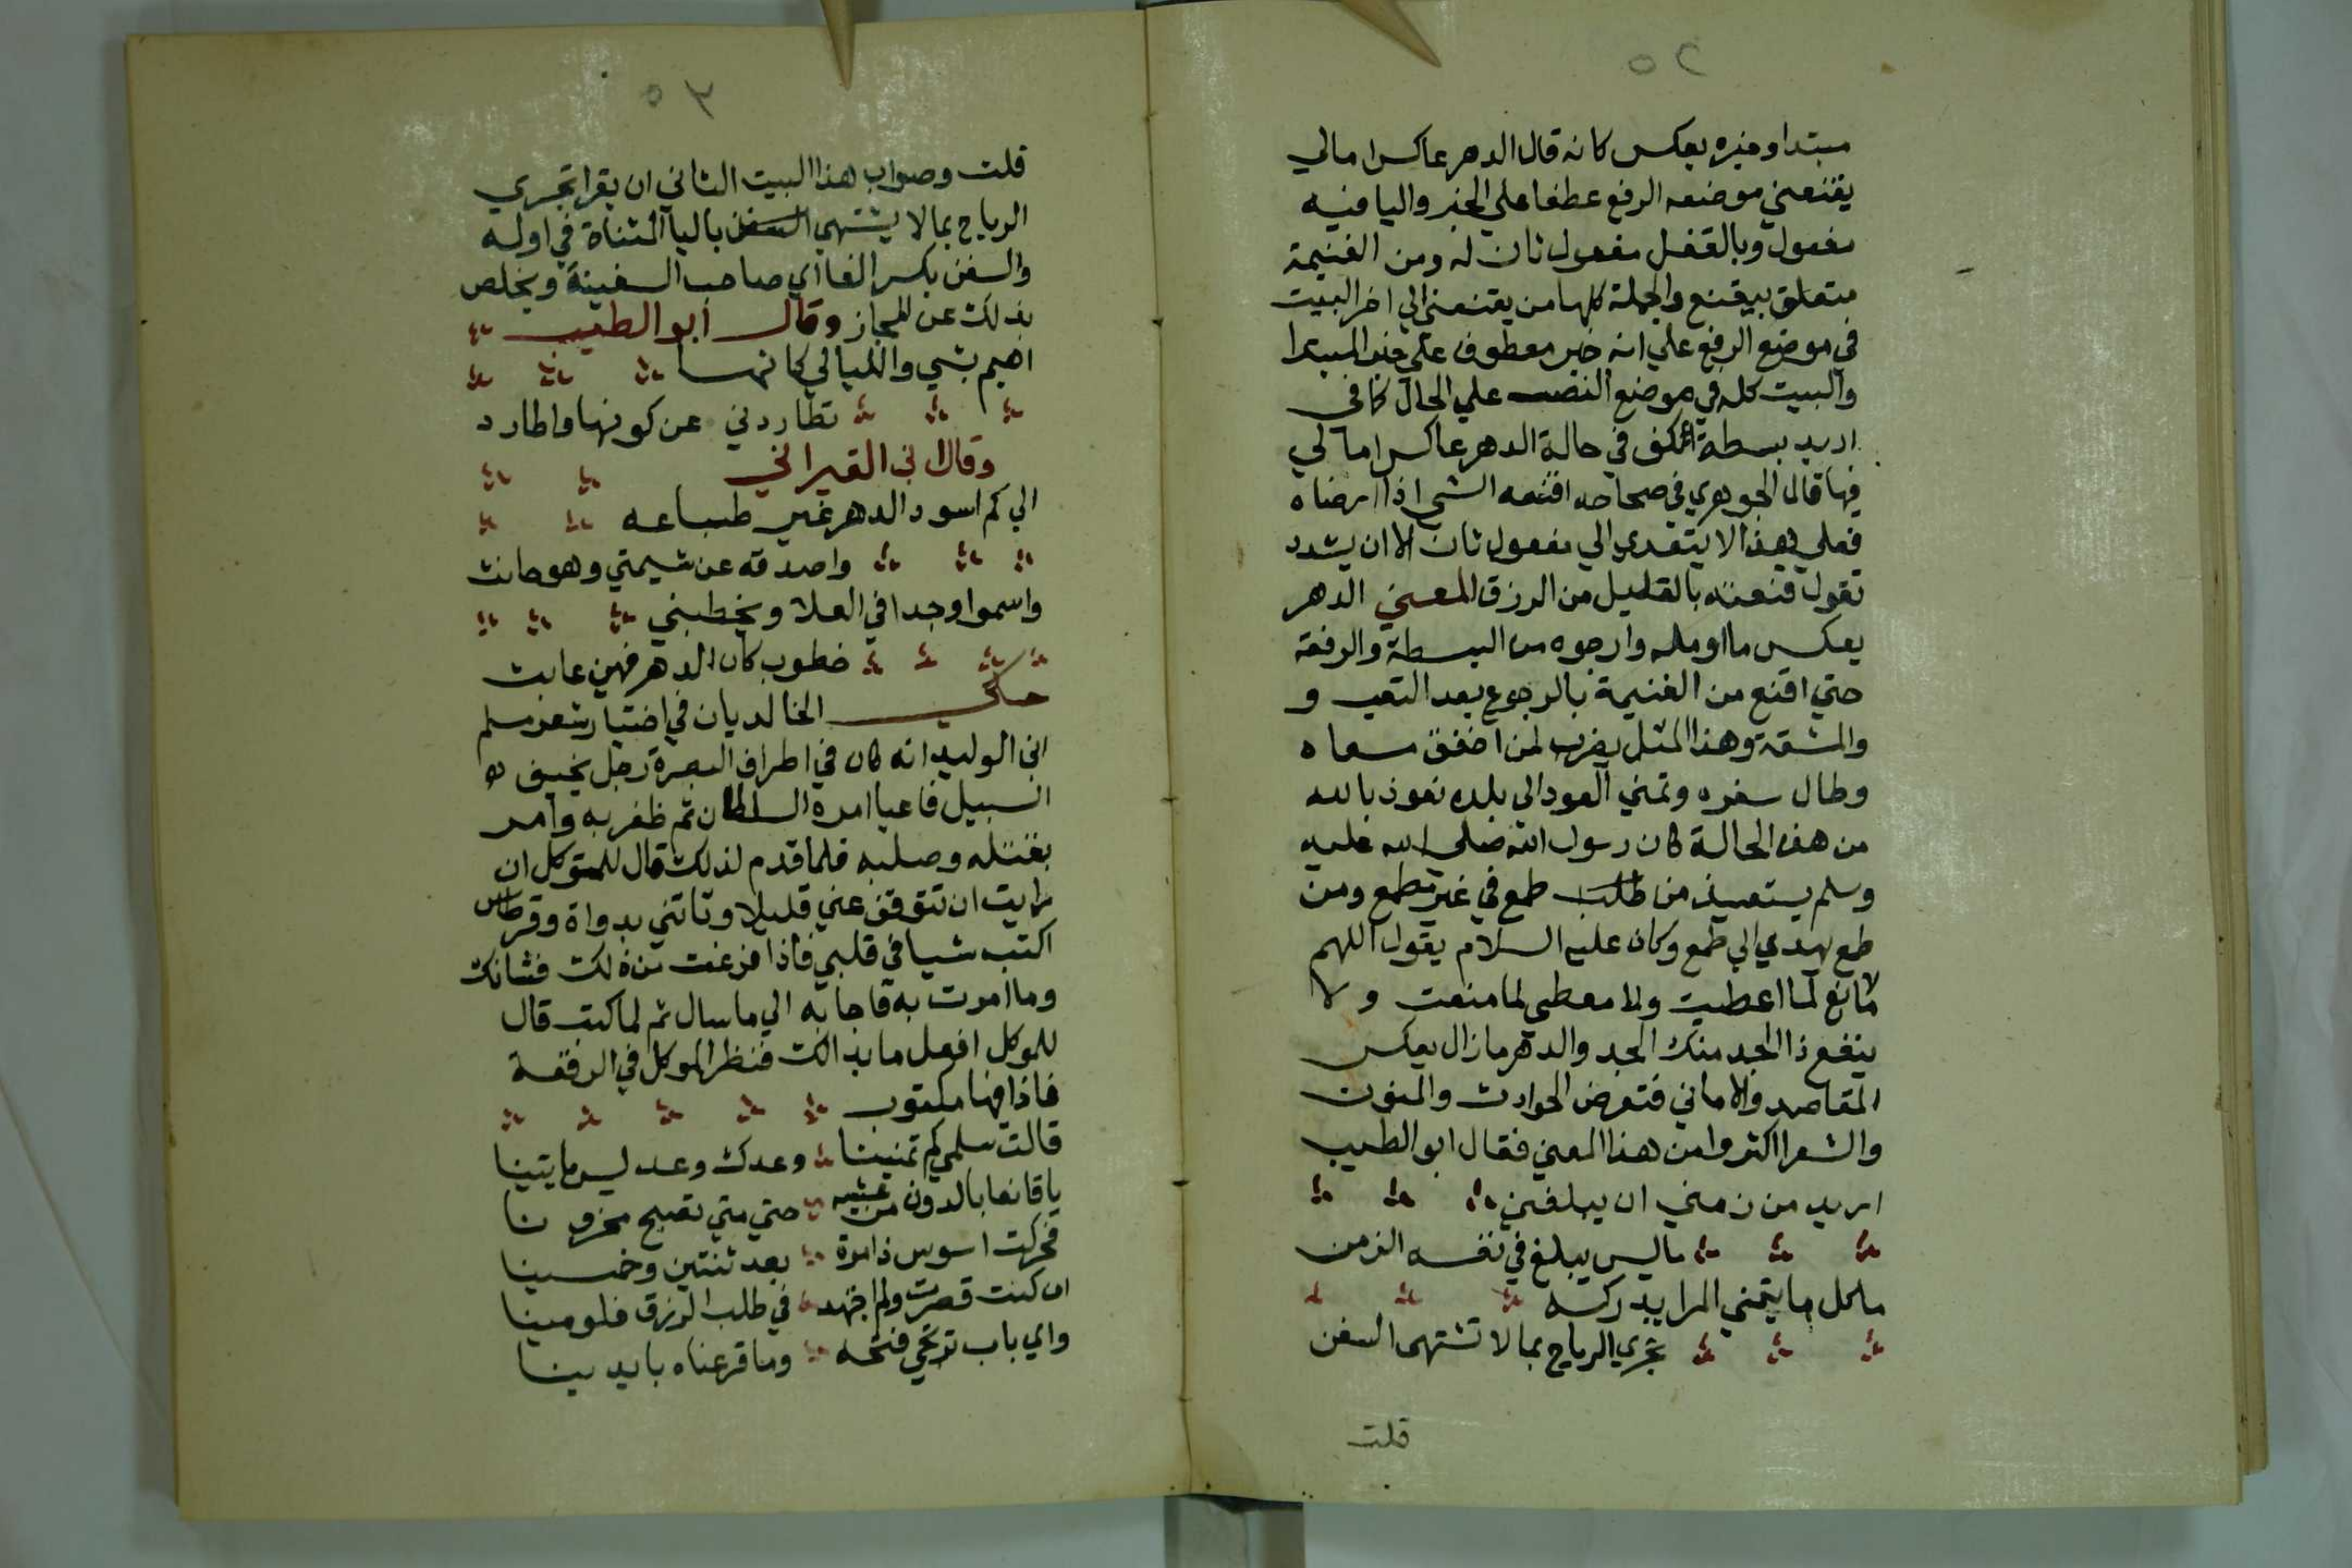 ٥٢
مبتدا وخبره يعكس كانه قال الدهر عاكس امالي
يقنعني موضعه الرفع عطفا علي الخبر واليا فيه
مفعول وبالقفل مفعول ثان له ومن الغنيمة
متعلق بيقنع والجملة كلها من يقنعني الي اخر البيت
في موضع الرفع علي انه خبر معطوف علي خبر المبتدا
والبيت كله في موضع النصب علي الحال كافي
اريد بسطة كف في حالة الدهر عاكس امالي
فيها قال الجوهري في صحاحه اقنعه الشي اذا ارضاه
فعلي هذا لا يتعدي الي مفعول ثان الا ان يشدد
تقول قنعته بالقليل من الرزق المعني الدهر
يعكس ما اومله وارجوه من البسطة والرفعة
حتي اقنع من الغنيمة بالرجوع بعد التعب و
والمشقة وهذا المثل يضرب لمن اخفق مسعاه
وطال سفره وتمني العود الي بلده نعوذ بالله
من هذه الحالة كان رسول الله صلي الله عليه
وسلم يستعيذ من طلب طمع في غير مطمع ومن
طمع يهدي الي طمع وكان عليه السلام يقول اللهم
لا مانع لما اعطيت ولا معطي لما منعت ولا
ينفع ذا الجد منك الجد والدهر ما زال يعكس
المقاصد والاماني فتعرض الحوادث والمنون
والشعرا اكثروا من هذا المعني فقال ابو الطيب
اريد من زمني ان يبلغني
ما ليس يبلغ في نفسه الزمن
ما كل ما يتمني المرا يدركه
تجري الرياح بما لا تشتهي السفن
قلت
٥٣
قلت وصواب هذا البيت الثاني ان يقرا تجري
الرياح بما لا يشتهي السفن باليا المثناة في اوله
والسفن بكسر الفا اي صاحب السفينة ويخلص
بذلك عن المجاز وقال ابو الطيب
اهيم بشي والليالي كانها
تطاردني عن كونها واطارد
وقال ابن القيراني
الي كم اسود الدهر غير طباعه
واصدقه عن شيمتي وهو حانث
واسموا وجدا في العلا ويخطبني
خطوب كان الدهر فهين عابث
حكي الخالديان في اختيار شعر مسلم
ابن الوليد انه كان في اطراف البصرة رجل يخيف
السبيل فاعيا امره السلطان ثم ظفر به وامر
بقتله وصلبه فلما قدم لذلك قال للمتوكل ان
رايت ان تتوقف عني قليلا وتاتني بدواة وقرطاس
اكتب شيا في قلبي فاذا فرغت من ذلك فشانك
وما امرت به فاجابه الي ما سال ثم لما كتب قال
للموكل افعل ما بدالك فنظر الموكل في الرقعة
فاذا فيها مكتوب
قالت سلمي كم تمنينا وعدك وعد ليس ياتينا
يا قانعا بالدون من عيشه حتي متي تصبح محزونا
فحركت اسوس ذامرة بعد ثنتين وخمسينا
ان كنت قصرت ولم اجتهد في طلب الرزق فلومينا
واي باب ترتجي فتحه وما قرعناه بايدينا